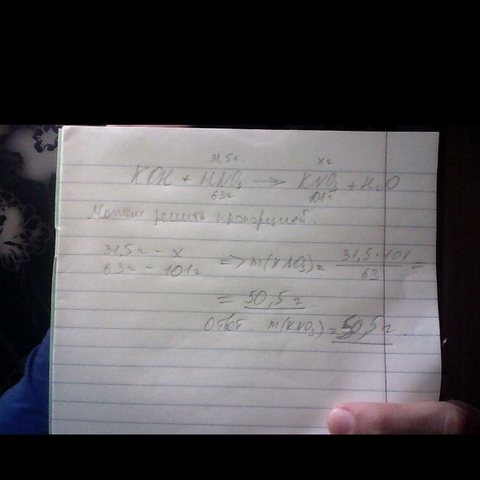 31,5г. xг
KOH + HNO3 —> KNO3 + H2O
63г 101г
Можно решить пропорцией.
31,5г – x
63г – 101г
=> m(KNO3) = 31,5·101 / 63 =
= 50,5г
Ответ m(KNO3) = 50,5г.